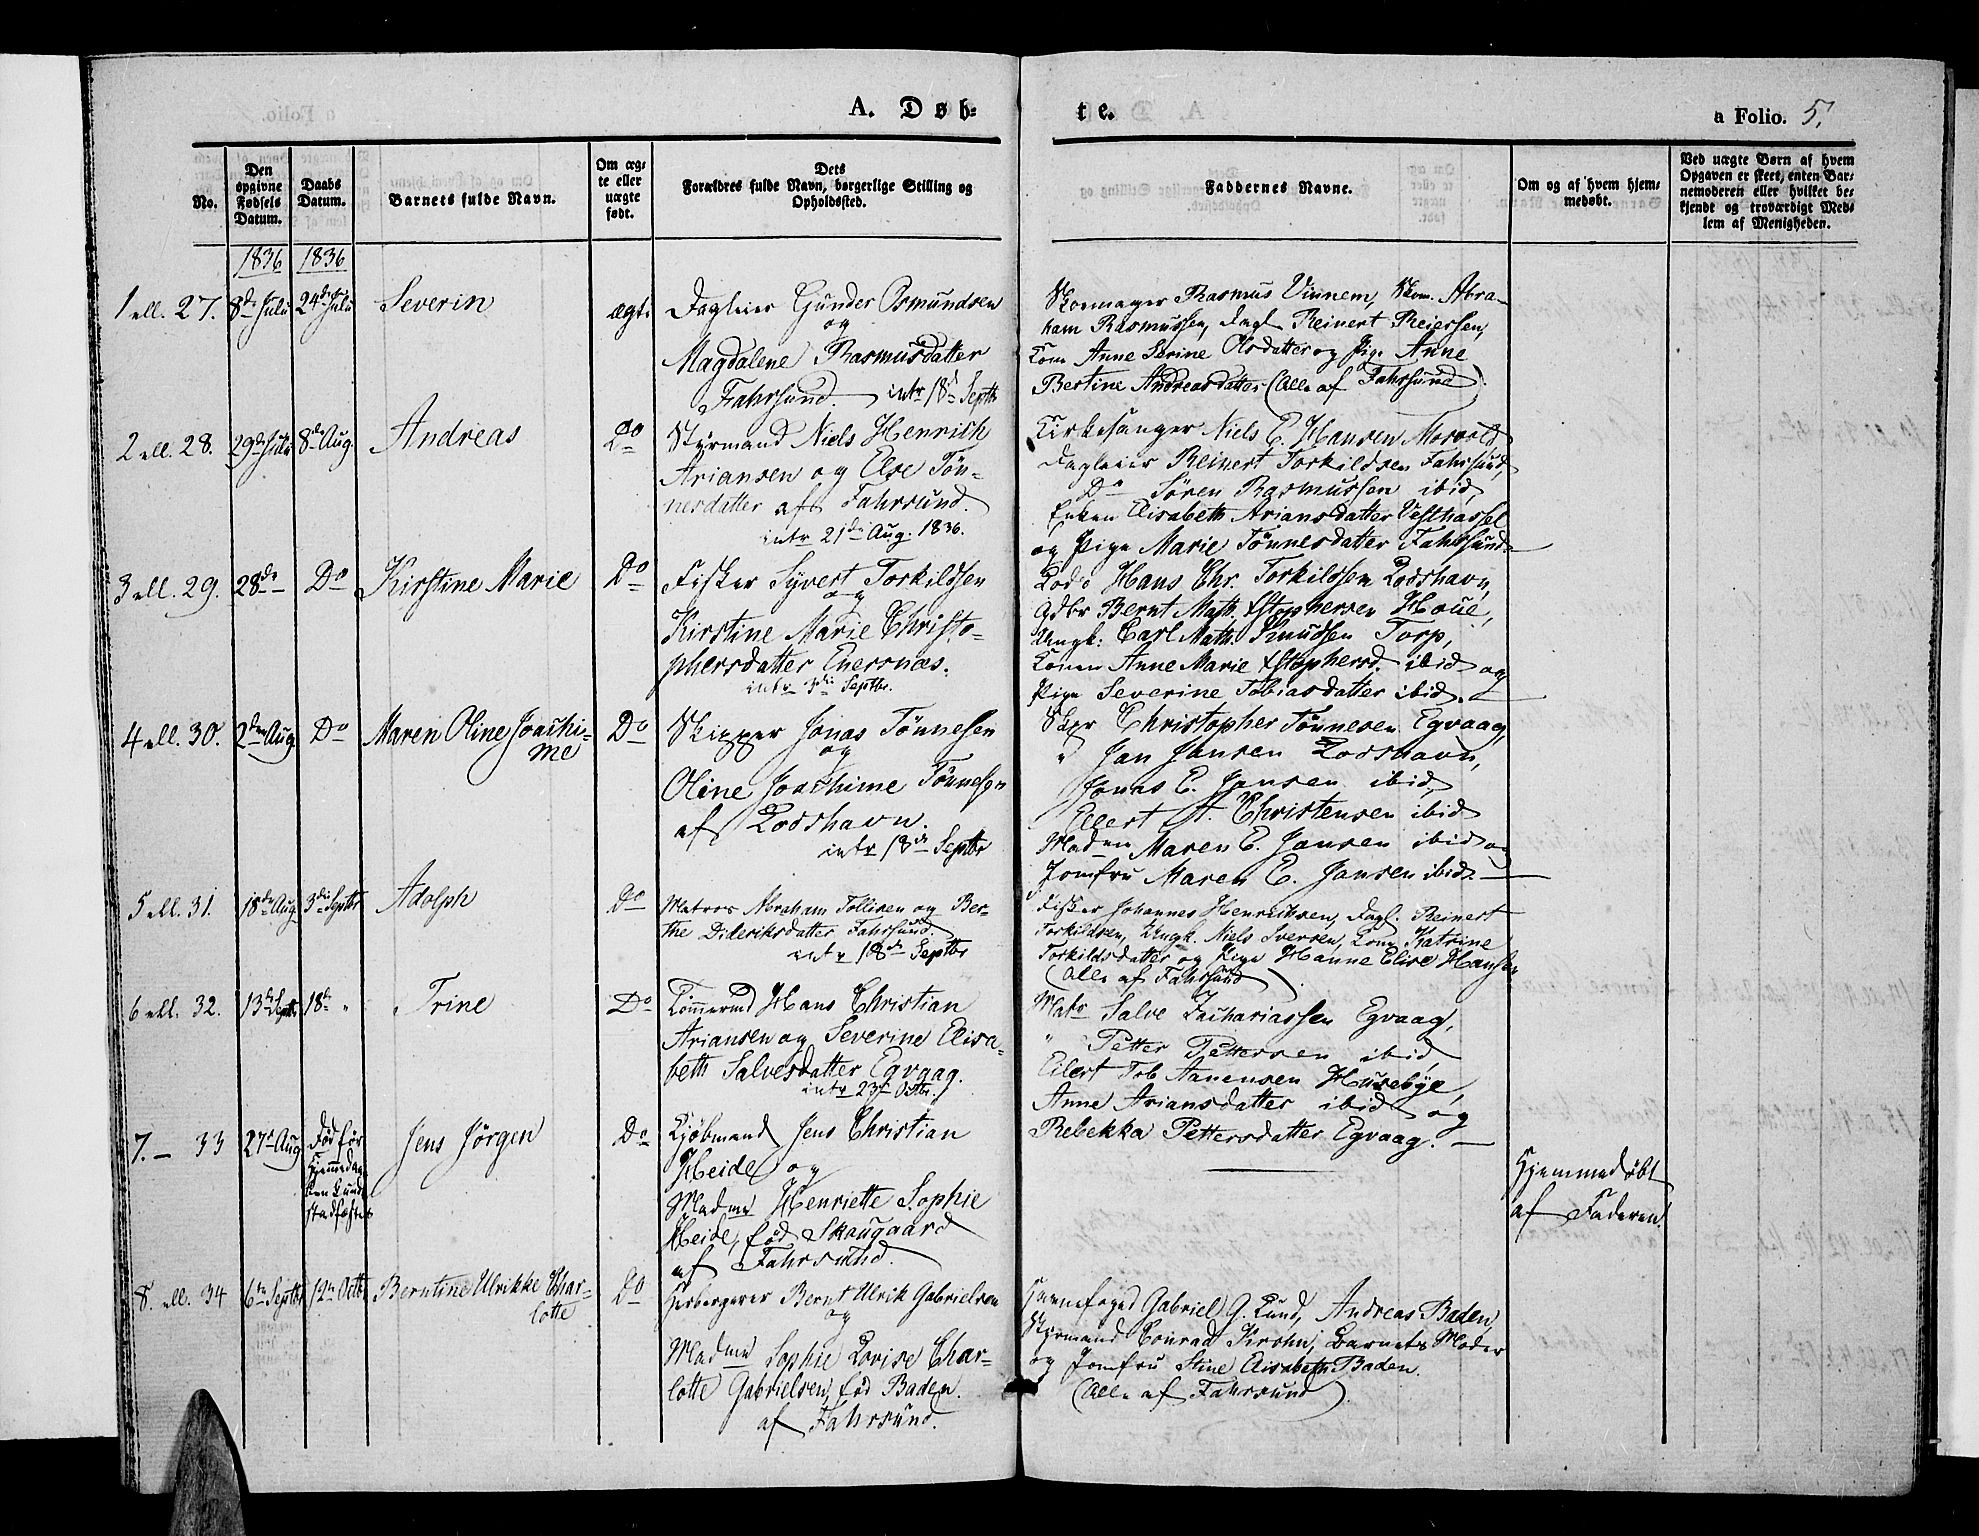 A. Døb=
te.
a Folio. 5.
No.
Den opgivne Fødsels Datum.
Daabs Datum.
Barnets fulde Navn.
Om ægte eller uægte født.
Dets Forældres fulde Navn, borgerlige Stilling og Opholdssted.
Faddernes Navne.
Om og af hvem hjemmedøbt.
Ved uægte Børn af hvem Opgaven er skeet, enten Barnemoderen eller hvilket bekjendt og troværdigt Medlem af Menigheden.
1836 1836
1 ell. 27. 8de Juli 24de Juli Severin ægte
Dagleier Gunder Osmundsen
og
Magdalene Rasmusdatter
Fahrsund. intr 18de Septbr
Skomager Rasmus Vinnem, Skom. Abra-
ham Rasmussen, Dagl Reinert Reiersen,
Kone Anne Serine Olsdatter og Pige Anne
Bertine Andreasdatter (Alle af Fahrsund).
2 ell. 28. 29de Juli 8de Aug. Andreas Do
Styrmand Niels Henrich
Ariansen og Else Tön-
nesdatter af Fahrsund.
intr 21de Aug. 1836.
Kirkesanger Niels E. Hansen
Dagleier Reinert Torkildsen Fahrsund,
Do Sören Rasmussen ibid,
Enken Elisabeth Ariansdatter Vesthassel
og Pige Marie Tönnesdatter Fahrsund
3 ell. 29. 28de Do Kirstine Marie Do
Fisker Syvert Torkildsen
og
Kirstine Marie Christo-
phersdatter Enersnæs.
intr 3die Septbr.
Lods Hans Chr. Torkildsen Lodshavn,
Gdbr Bernt Math. Xstophersen Houe,
Ungk: Carl Math. Knudsen Torp,
Konen Anne Marie Xstophersd. ibid og
Pige Severine Tobiasdatter ibid.
4 ell. 30. 2den Aug Do Maren Oline Joachi-
me Do
Skipper Jonas Tönnesen
og
Oline Joachime Tönnesen
af Lodshavn.
intr 18de Septbr
Skpr Christopher Tönnesen Egvaag,
" Jan Jansen Lodshavn,
Jonas E. Jansen ibid,
Ellert A. Christensen ibid
Madme Maren E. Jansen ibid og
Jomfru Maren E. Jansen ibid.
5 ell. 31. 18de Aug 3die Septbr Adolph Do
Matros Abraham Tollisen og Ber-
the Dideriksdatter Fahrsund.
intr 18de Septbr
Fisker Johannes Henrichsen, Dagl. Reinert
Torkildsen, Ungk. Niels Iversen, Kone Katrine
Torkildsdatter og Pige Hanne Elise Hansen
(Alle af Fahrsund)
6 ell. 32. 13de Septbr 18de " Trine Do
Tömmermd Hans Christian
Ariansen og Severine Elisa-
beth Salvesdatter Egvaag.
intr 23de Octbr.
Matr Salve Zachariassen Egvaag,
" Petter Pettersen ibid,
Eilert Tob Aanensen Husebye,
Anne Ariansdatter ibid og
Rebekka Pettersdatter Egvaag.
7. — 33 27de Aug Död för
Hjemmedaa-
ben kunde
stadfæstes Jens Jörgen Do
Kjöbmand Jens Christian
Heide og
Madme Henriette Sophie
Heide, föd Skougaard
af Fahrsund.
Hjemmedöbt
af Faderen.
8. ell. 34 6te Septbr 12te Octbr Berntine Ulrikke Char-
lotte Do
Herbergerer Bernt Ulrik Gabrielsen
og
Madme Sophie Lovise Char-
lotte Gabrielsen, föd Baden.
af Fahrsund.
Havnefoged Gabriel G. Lund, Andreas Baden,
Styrmand Conrad Krohn, Barnets Moder
og Jomfru Stine Elisabeth Baden.
(Alle af Fahrsund).